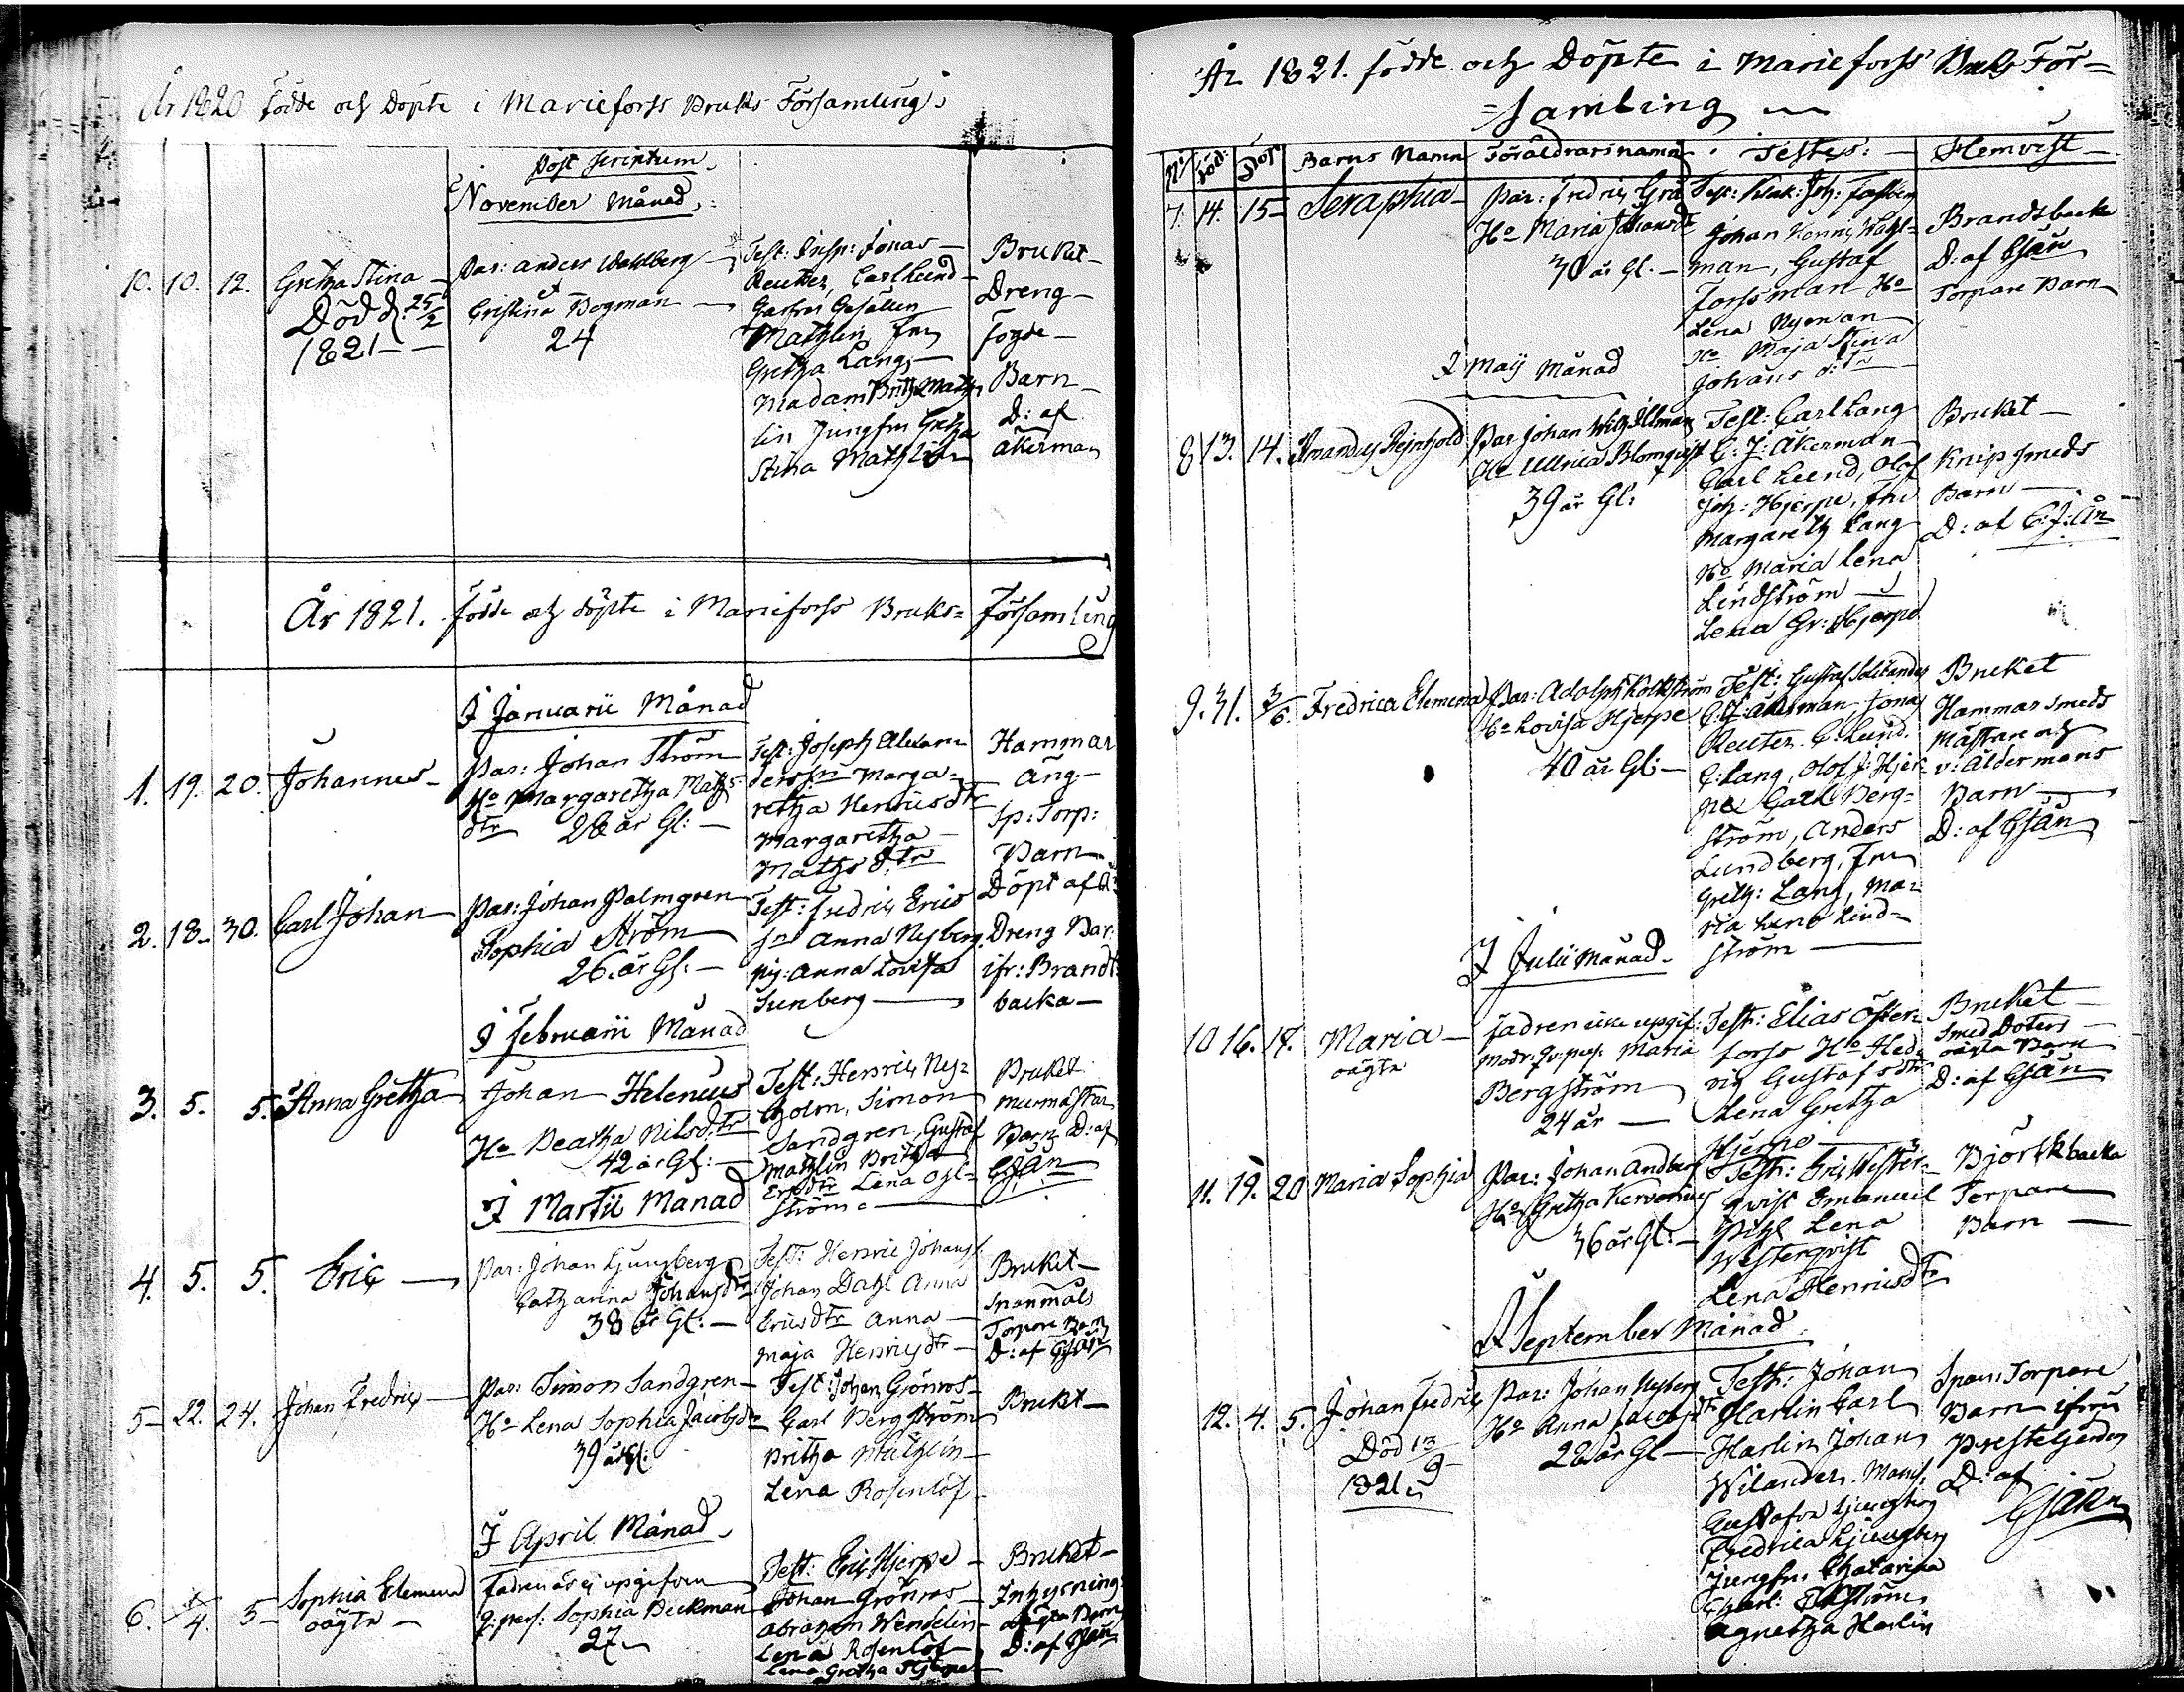 År 1820 födde och Döpte i Marieforss Bruks Församling
Post scriptum
November Månad
10. 10. 12. Gretha Stina
Död d. 25/2
1821
Par: Anders Wahlberg
et
Cristina Bogman
24
Test: Insp: Jonas
Reuter, Carl Lund
Gesällen
Mathlin Fru
Gretha Lang
Madam Britha Math
lin Jungfru Gretha
Stina Mathlin
Bruket
Dreng
fogde
Barn
D: af
åkerman
År 1821. födde och döpte i Marieforss Bruks Församling
I Januarii Månad
1. 19. 20. Johannes
Par: Johan Ström
Ho Margaretha Maths
dtr 26 år Gl:
Test: Joseph Alexan
dersn Marga
retha Henricsdtr
Margaretha
Maths dtr
Hammar
äng
Sp: Torp:
Barn
Döpt af
2. 18. 30. Carl Johan
Par: Johan Palmgren
Sophia Ström
26. år Gl.
Test: Fredric Erics
sn Anna Nyberg
pig: Anna Lovisa
Sunberg
Dreng Bar
ifr: Brandt
backa
I Februarii Månad
3. 5. 5. Anna Gretha
Johan Helenius
Ho Beatha Nilsdtr
42 år Gl:
Test: Henric Ny
holm, Simon
Sandgren, Gustaf
Mathlin Britha
Ericsdtr Lena
ström
Bruket
murmästar
Barn D: af
I Martii Månad
4. 5. 5. Eric
Par: Johan Ljungberg
Catharina Johansdtr
38 år Gl:
Test: Henric Johans
Johan Dahl Anna
Ericsdtr Anna
Maja Henricsdtr
Bruket
Spanmåls
Torpare Barn
D: af
5 22. 24. Johan Fredric
Par: Simon Sandgren
Ho Lena Sophia Jacobsd
39 år Gl:
Test: Johan Grönros
Carl Bergström
Britha Mathlin
Lena Rosenlöf
Bruket
I April Månad
6. 4. 5 Sophia Elemena
oägta
Fadren är ej upgifven
q: pers: Sophia Beckman
27
Test: Eric Hjerpe
Johan Grönros
Abraham Wendelin
Lena Rosenlöf
Lena Gretha Hjerpe
Bruket
Inhysning
oägta Barn
D: af
År 1821. födde och Döpte i Marieforss Bruks För=
=samling
No Född Döpt Barns Namn Föräldrars namn Testes: Hemvist
7. 14. 15 Seraphia
Par: Fredric Grå
Ho Maria Johansdtr
30 år Gl.
Johan Henric Wahl
man, Gustaf
Forssman Ho
Lena Nyman
Ho Maja Stina
Johans dtr
Brandsbacka
D: af
Torpare Barn
I Maij Månad
8 13. 14. Amandus Rejnhold
Par Johan Wilh: Ullman
Ho Ullrica Blomqvist
39 år Gl:
Test: Carl Lang
C: J: Åkerman
Carl Lund, Olof
Joh: Hjerpe, Fru
Margareth Lang
Ho Maria Lena
Lindström
Lena Gr: Hjerpe
Bruket
Knipsmeds
Barn
D: af C: J: Ån
9. 31. 3/6 Fredrica Elemena
Par: Adolph Holkström
Ho Lovisa Hjerpe
40 år Gl:
Test: Gustaf
C: J: Åkerman Jonas
Reuter C: Lund
C: Lang, Olof J: Hjer
pe Carl Berg=
ström, Anders
Lundberg, Fru
Greth: Lang, Ma=
ria Lena Lind=
ström
Bruket
Hammarsmeds
Mästare och
v: åldermans
Barn
D: af
I Julii Månad
10 16. 17. Maria
oägta
Fadren icke upgif:
Modr: qv: pers: Maria
Bergström
24 år
Test: Elias Öster
forss Ho Hed
vig Gustafsdtr
Lena Gretha
Hjerpe
Bruket
Smed Doters
oägta Barn
D: af
11. 19. 20 Maria Sophia
Par: Johan Andberg
Ho Gretha
36 år Gl:
Test: Eric Wester
qvist Emanuel
Pihl Lena
Westerqvist
Lena Henricsdtr
Björkbacka
Torpare
Barn
I September Månad
12. 4. 5. Johan Fredric
Död 13/9
1821
Par: Johan Nyberg
Ho Anna Jacobsdtr
28 år Gl
Test: Johan
Harlin Carl
Harlin Johan
Wilander
Gustafva Ljungberg
Fredrica Ljungberg
Jungfru Chatarina
Ekström
Agnetha Harlin
Span: Torpare
Barn ifrån
Prestgården
D: af